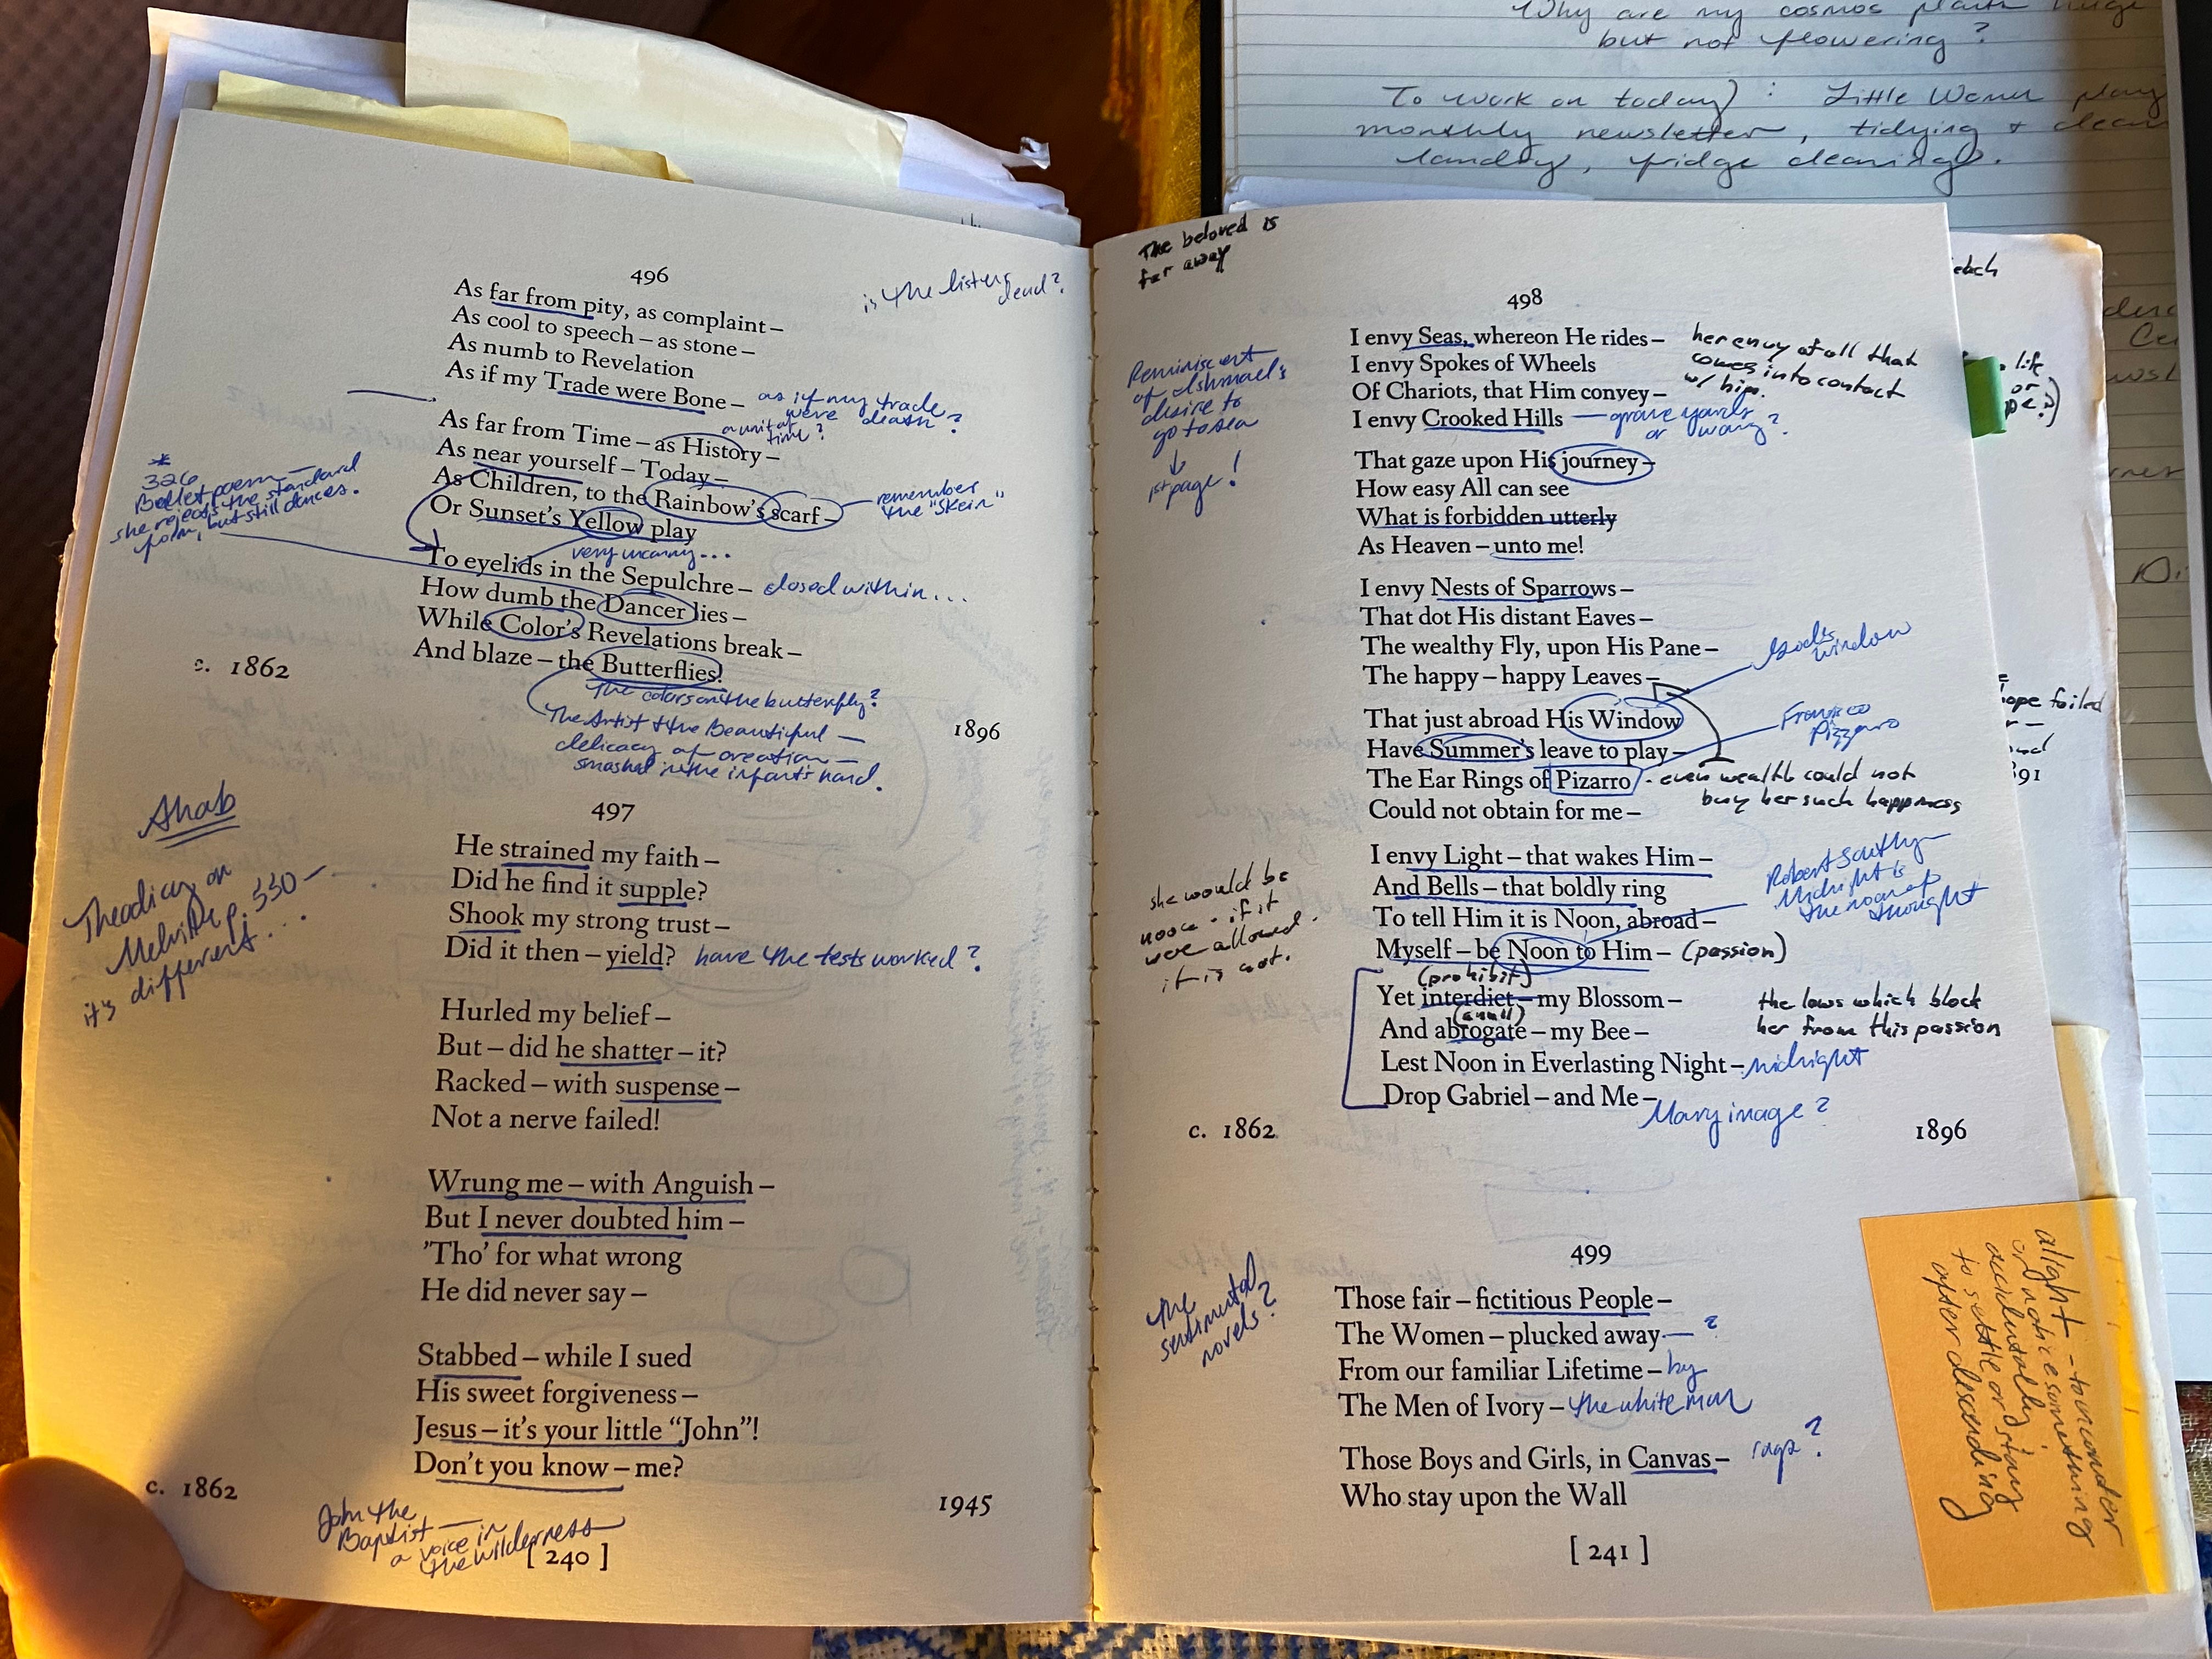 Why are my cosmos plants huge
but not flowering?
To work on today: Little Women play
monthly newsletter, tidying + clean
laundry, fridge cleaning.
496
is the listener dead?
As far from pity, as complaint –
As cool to speech – as stone –
As numb to Revelation
As if my Trade were Bone –
as if my trade
were death?
a unit of
time?
As far from Time – as History –
As near yourself – Today –
As Children, to the Rainbow's scarf –
Or Sunset's Yellow play
remember
the "skein"
* 326
Ballet poem –
she rejects the standard
form, but still dances.
very uncanny...
To eyelids in the Sepulchre –
closed within...
How dumb the Dancer lies –
While Color's Revelations break –
And blaze – the Butterflies!
c. 1862
1896
The colors on the butterfly?
The Artist & the Beautiful –
delicacy of creation –
smashed in the infant's hand.
497
Ahab
Theodicy on
Melville p. 330 –
it's different...
He strained my faith –
Did he find it supple?
Shook my strong trust –
Did it then – yield?
have the tests worked?
Hurled my belief –
But – did he shatter – it?
Racked – with suspense –
Not a nerve failed!
Wrung me – with Anguish –
But I never doubted him –
'Tho' for what wrong
He did never say –
Stabbed – while I sued
His sweet forgiveness –
Jesus – it's your little "John"!
Don't you know – me?
c. 1862
1945
John the
Baptist –
a voice in
the wilderness
[ 240 ]
The beloved is
far away
498
I envy Seas, whereon He rides –
I envy Spokes of Wheels
Of Chariots, that Him convey –
I envy Crooked Hills
her envy of all that
comes into contact
w/ him.
grave yards
or wavy?
Reminiscent
of Ishmael's
desire to
go to sea
1st page!
That gaze upon His journey –
How easy All can see
What is forbidden utterly
As Heaven – unto me!
I envy Nests of Sparrows –
That dot His distant Eaves –
The wealthy Fly, upon His Pane –
The happy – happy Leaves –
God's
window
That just abroad His Window
Have Summer's leave to play –
The Ear Rings of Pizarro
Could not obtain for me –
Francisco
Pizzaro
- even wealth could not
buy her such happiness
I envy Light – that wakes Him –
And Bells – that boldly ring
To tell Him it is Noon, abroad –
Myself – be Noon to Him –
(passion)
Robert Southy –
Midnight is
the noon of
thought
she would be
noon - if it
were allowed.
it is not.
(prohibit)
Yet interdict – my Blossom –
(annul)
And abrogate – my Bee –
Lest Noon in Everlasting Night –
Drop Gabriel – and Me –
the laws which block
her from this passion
midnight
Mary image?
c. 1862
1896
499
the
sentimental
novels?
Those fair – fictitious People –
The Women – plucked away –
?
From our familiar Lifetime –
by
The Men of Ivory –
the white man
Those Boys and Girls, in Canvas –
rags?
Who stay upon the Wall
[ 241 ]
alight - to encounter
or notice something
accidentally.
to settle or stay
after descending
each
life
or
hope failed
891